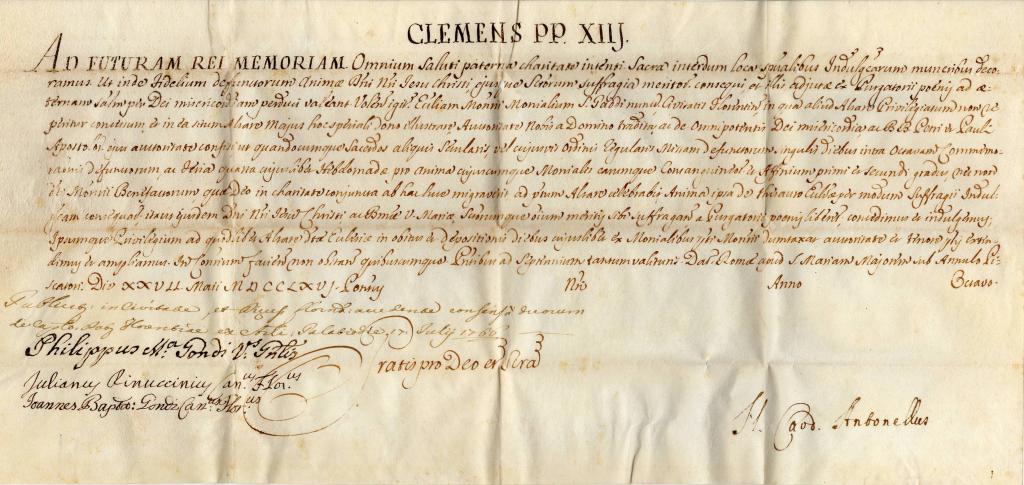 CLEMENS PP. XIIJ.
AD FUTURAM REI MEMORIAM. Omnium Saluti paterna charitate intenti Sacra interdum loca spiãlibus Indulg̃carum muneribus deco-
ramus. Ut inde Fidelium defunctorum Animæ Dñi Nr̃i Jesu Christi, ejusq̃ Sctorum suffragia meritor. consequi et illis adjutæ ex Purgatorij poenis ad æ-
ternam salm̃ per Dei misericordiam perduci valeant Volen igit̃ Ecc̃liam Monrij Monialium S. nuncup. Civitatis Florentin, in qua aliud Altare Privilegiatum non re-
peritur concessum, et in ea situm Altare Majus hoc speciali dono illustrare Auctoritate Nobis a Domino tradita, ac de Omnipotentis Dei misericordia ac B.B. Petri et Pauli
Aposto.or. ejus auctoritate confisi ut quandocumque Sacerdos aliquis Secularis, vel cujusvis Ordinis Regularis Missam defunctorum singulis diebus infra Octavam Commemo-
rationis defunctorum, ac Feria quarta cujuslibet Hebdomadæ pro anima cujuscumque Monialis earumque Consanguineor. et Affinium primi et secundi gradus, nec non
dti Monrij Benefactorum quæ Deo in charitate conjuncta ab hac luce migraverit ad p̃num Altare celebrabit, Anima ipsa de thesauro Ecc̃liæ per modum Suffragij Indul-
g̃cam consequat. ita ut ejusdem Dñi Nr̃i Jesu Christi ac Bmæ V. Mariæ, Sctorumque oium meritis sibi suffragan a Purgatorij poenis liberet, concedimus et indulgemus,
Ipsumque Privilegium ad quodlibet Altare dtæ Ecc̃liæ in obitus et depositionis diebus cujuslibet ex Monialibus Monrij dumtaxat auctoritate et tenore extendi-
dimus et ampliamus. In contrium facien non obstan quibuscumque P̃ntibus ad Septennium tantum valituris. Dat. Romæ apud S. Mariam Majorem sub Annulo Pi-
scatoris Die XXVII Maii MDCCLXVI. Pontus Nri Anno Octavo.
Publicetur in Civitate, et Diœcesi Florẽ. de consensu duorum
de Capto. Florentiæ ex Archi. Palatio die 17. July 1766
Philippus Ma. Gondi Vs. Gñlis
Julianus Rinuccinius Canus. Florus.
Joannes Bapta: Gondi Canus. Florus.
Gratis pro Deo et Scra
N. Card. Antonellus